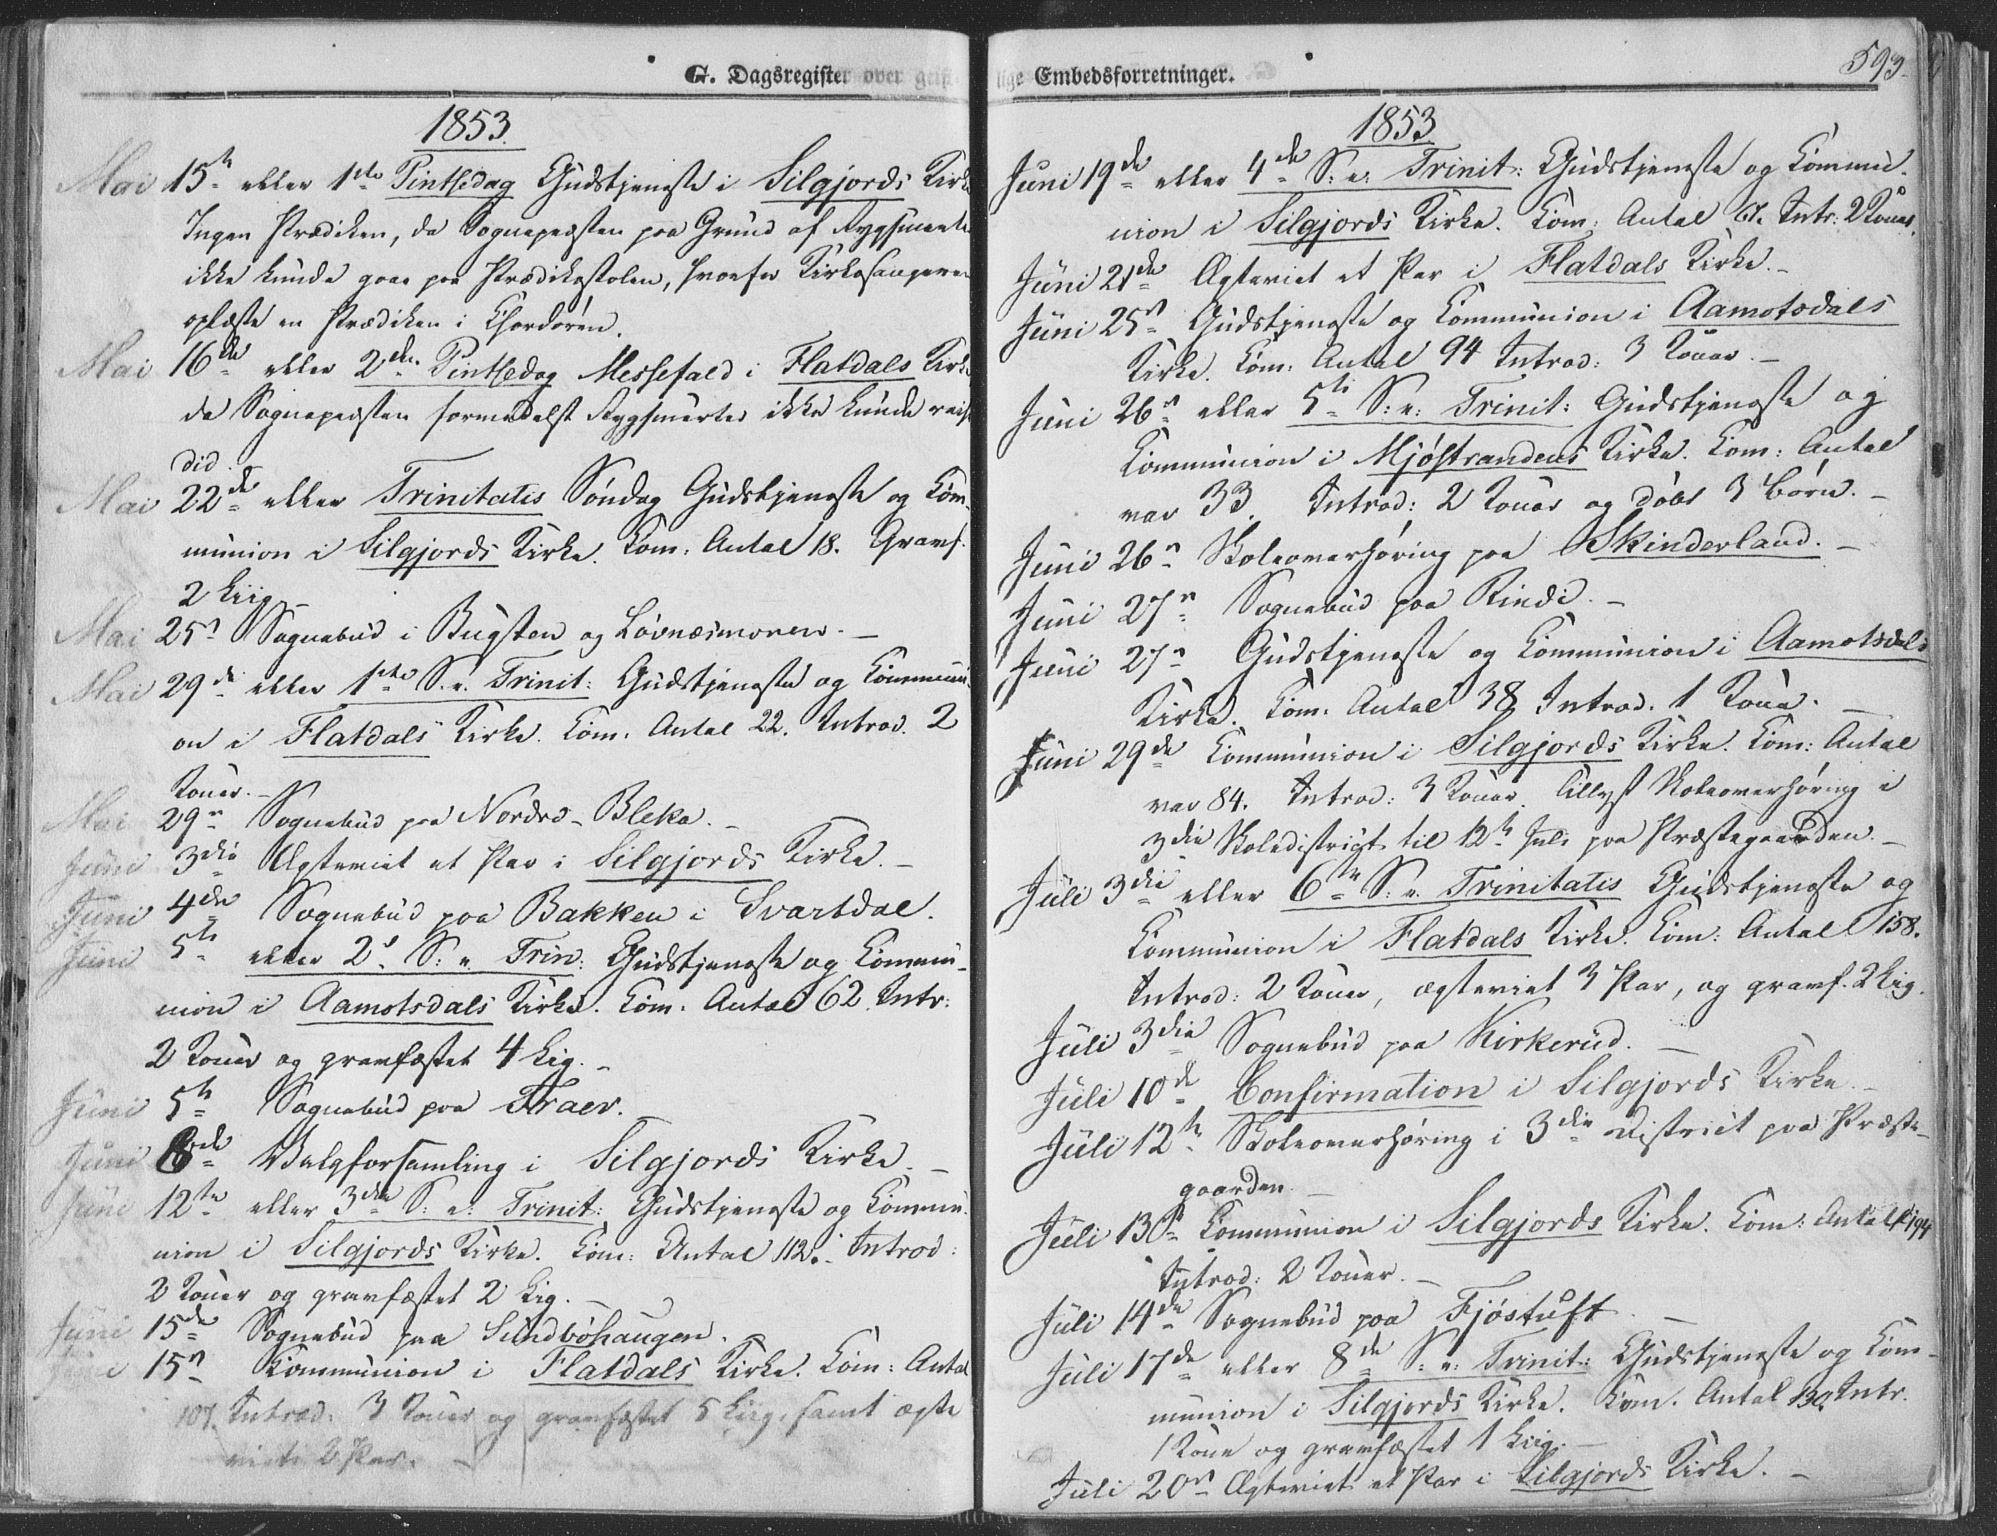 G. Dagsregister over geist-
1853.
Mai 15de eller 1ste Pintsedag Gudstjeneste i Silgjords Kirke
Ingen Prædiken, da Sognepræsten paa Grund af Rygsmerte
ikke kunde gaae paa Prædikestolen, hvorfor Kirkesangeren
oplæste en Prædiken i Chordøren.
Mai 16de eller 2den Pintsedag Messefald i Flatdals Kirke
da Sognepræsten formedelst Rygsmerter ikke kunde reise
did.
Mai 22de eller Trinitatis Søndag Gudstjeneste og Kom-
munion i Silgjords Kirke. Kom. Antal 18. Gravf.
2 Liig. –
Mai 25de Sognebud i Bugten og Løvnæsmonen. –
Mai 29de eller 1ste S. e. Trinit: Gudstjeneste og Kommuni-
on i Flatdals Kirke. Kom. Antal 22. Introd. 2
Koner. –
Mai 29de Sognebud paa Nordre-Bleka. –
Juni 3die Ægteviet et Par i Silgjords Kirke. –
Juni 4de Sognebud paa Bakken i Svartdal.
Juni 5te eller 2d S: e. Trin: Gudstjeneste og Kommu-
nion i Aamotsdals Kirke. Kom. Antal 62. Intr:
2 Koner og gravfæstet 4 Lig. –
Juni 5te Sognebud paa Traer.
Juni 8de Valgforsamling i Silgjords Kirke. –
Juni 12te eller 3die S: e: Trinit: Gudstjeneste og Kommu-
nion i Silgjords Kirke. Kom: Antal 112. Introd:
2 Koner og gravfæstet 2 Lig. –
Juni 15de Sognebud paa Sundbøhaugen. –
Juni 15de Kommunion i Flatdals Kirke. Kom: Antal
107. Introd: 3 Koner og gravfæstet 5 Liig, samt ægte
viet 2 Par. –
lige Embedsforretninger.
593.
1853
Juni 19de eller 4de S: e: Trinit: Gudstjeneste og Kommu-
nion i Silgjords Kirke. Kom: Antal 67. Intr: 2 Koner.
Juni 21de Ægteviet et Par i Flatdals Kirke. –
Juni 25de Gudstjeneste og Kommunion i Aamotsdals
Kirke. Kom: Antal 94 Introd: 3 Koner. –
Juni 26de eller 5te S: e: Trinit: Gudstjeneste og
Kommunion i Mjøstrandens Kirke. Kom: Antal
var 33. Introd: 2 Koner og døbt 3 Børn. –
Juni 26de Skoleoverhøring paa Skinderland. –
Juni 27de Sognebud paa Rinde. –
Juni 27de Gudstjeneste og Kommunion i Aamotsdals
Kirke. Kom. Antal 38 Introd. 1 Kone. –
Juni 29de Kommunion i Silgjords Kirke. Kom: Antal
var 84. Introd: 3 Koner. Tillyst Skoleoverhøring i
3die Skoledistrigt til 12te Juli paa Præstegaarden. –
Juli 3die eller 6te S: e. Trinitatis Gudstjeneste og
Kommunion i Flatdals Kirke. Kom: Antal 158.
Introd: 2 Koner, ægteviet 3 Par, og gravf. 2 Lig.
Juli 3die Sognebud paa Kirkerud. –
Juli 10de Confirmation i Silgjords Kirke. –
Juli 12te Skoleoverhøring i 3die District paa Præste-
gaarden. –
Juli 13de Kommunion i Silgjords Kirke. Kom: Antal 194
Introd: 2 Koner. –
Juli 14de Sognebud paa Fjøstuft. –
Juli 17de eller 8de S: e: Trinit: Gudstjeneste og Kom-
munion i Silgjords Kirke. Kom. Antal 130. Intr.
1 Kone og gravfæstet 1 Liig. –
Juli 20de Ægteviet et Par i Silgjords Kirke. –